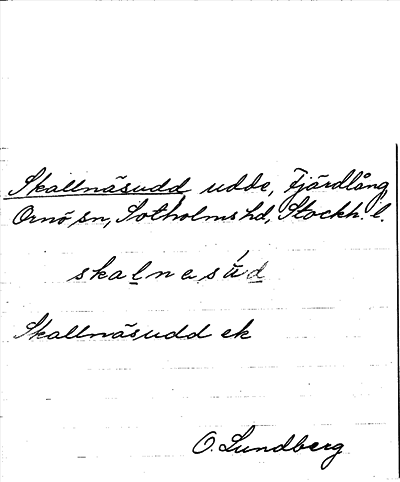 Skallnäsudd udde, Fjärdlång
Ornö sn, Sotholms hd, Stockh. l.
skalnesúd
Skallnäsudd ek
O. Lundberg